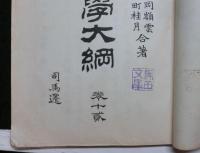 岡嶺雲
町桂月 合著
學大綱
卷十貳
司馬遷